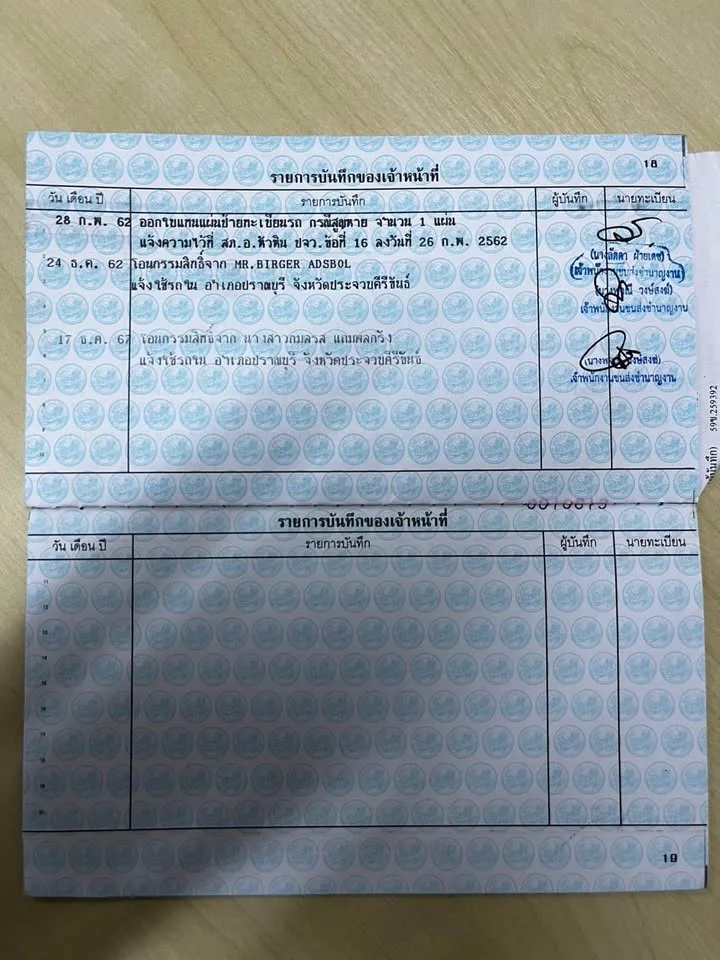 18
รายการบันทึกของเจ้าหน้าที่
วัน เดือน ปี รายการบันทึก ผู้บันทึก นายทะเบียน
28 ก.พ. 62 ออกใบแทนแผ่นป้ายทะเบียนรถ กรณีสูญหาย จำนวน 1 แผ่น
แจ้งความไว้ที่ สภ.อ.หัวหิน ปจว.ข้อที่ 16 ลงวันที่ 26 ก.พ. 2562
(เจ้าพนักงานขนส่งชำนาญงาน)
24 ธ.ค. 62 โอนกรรมสิทธิ์จาก MR.BIRGER ADSBOL
แจ้งใช้รถใน อำเภอปราณบุรี จังหวัดประจวบคีรีขันธ์
วงษ์สงฆ์)
เจ้าพนักงานขนส่งชำนาญงาน
17 ธ.ค. 67 โอนกรรมสิทธิ์จาก นางสาวกมลรส
แจ้งใช้รถใน อำเภอปราณบุรี จังหวัดประจวบคีรีขันธ์
เจ้าพนักงานขนส่งชำนาญงาน
59ข.259392
รายการบันทึกของเจ้าหน้าที่
วัน เดือน ปี รายการบันทึก ผู้บันทึก นายทะเบียน
11
12
13
14
15
16
17
18
19
20
19